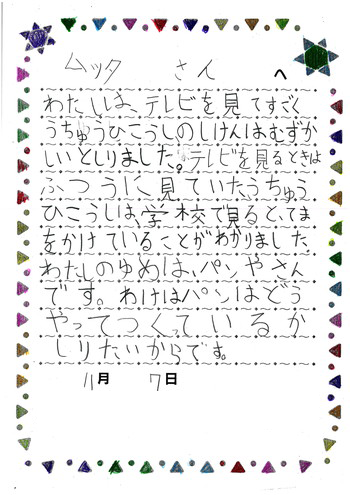 ムッタ さん へ
わたしは、テレビを見てすごく
うちゅうひこうしのしけんはむずか
しいとしりました。テレビを見るときは
ふつうに見ていた、うちゅう
ひこうしは、学校で見ると、てま
をかけていることがわかりました、
わたしのゆめは、パンやさん
です。わけはパンはどう
やってつくっているか
しりたいからです。
11月 7日